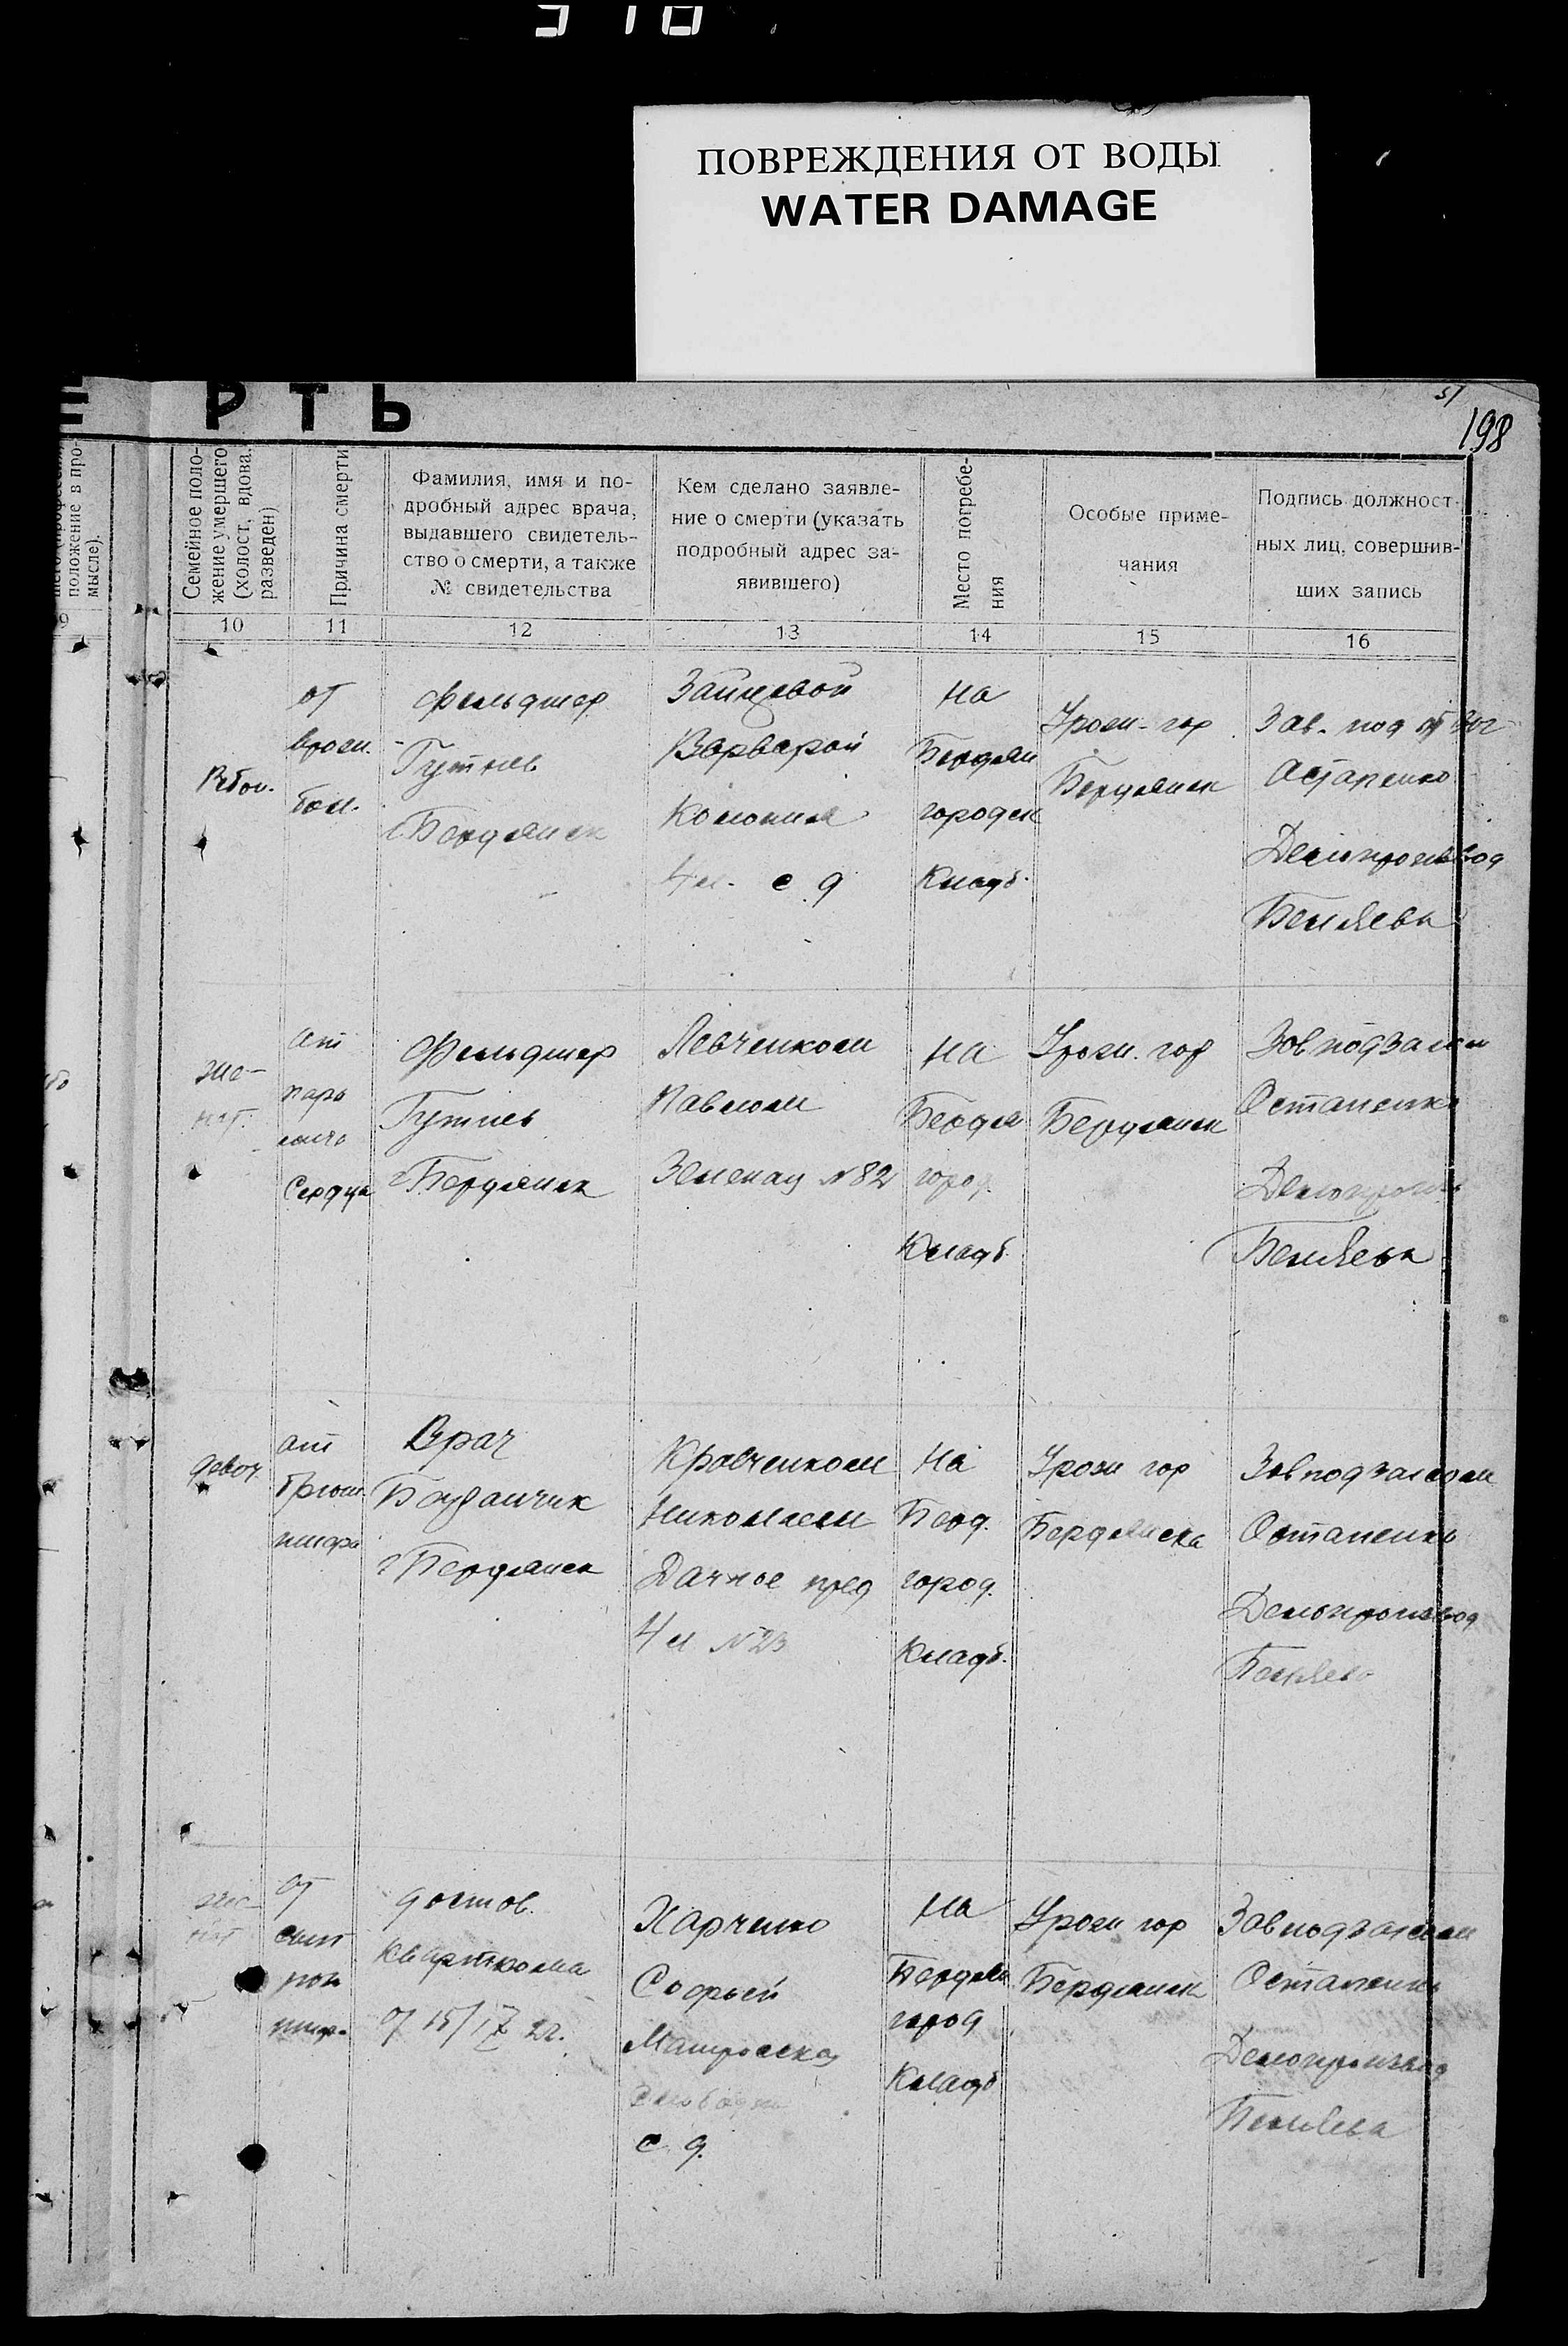 ПОВРЕЖДЕНИЯ ОТ ВОДЫ
WATER DAMAGE
51
198
РТЬ
положение в про-
мысле).
Семейное поло-
жение умершего
(холост, вдова,
разведен)
Причина смерти
Фамилия, имя и по-
дробный адрес врача,
выдавшего свидетель-
ство о смерти, а также
№ свидетельства
Кем сделано заявле-
ние о смерти (указать
подробный адрес за-
явившего)
Место погребе-
ния
Особые приме-
чания
Подпись должност-
ных лиц, совершив-
ших запись
9
10
11
12
13
14
15
16
от
врож.
бол.
фельдшер
Гутнев
г Бердянск
Зайцевой
Варварой
Колония
4 л. с. д
на
Бердян
городск
Кладб.
Урож. гор
Бердянск
Зав. под
Астапенко
Делопроизвод
Беляева
же-
нат.
от
пара
лича
Сердца
Фельдшер
Гутнев
г Бердянск
Левченком
Павлом
Зеленая №82
на
Бердя
город.
Кладб.
Урож. гор
Бердянск
Зав подзагсом
Остапенко
Делопроизв
Беляева
девоч.
от
брюш.
тифа
Врач
г Бердянск
Кравченком
Николаем
Дачное пред
4 л №23
на
Берд.
город.
Кладб.
Урож гор
Бердянска
Зав подзагсом
Остапенко
Делопроизвод
Беляева
же-
нат
от
сып
ного
тифа
достов.
Квартхома
от 15/IV 22.
Харченко
Софьей
Матросская
Слободка
с. д.
на
Бердян
город
Кладб
Урож гор
Бердянск
Зав подзагсом
Остапенко
Делопроизвод
Беляева